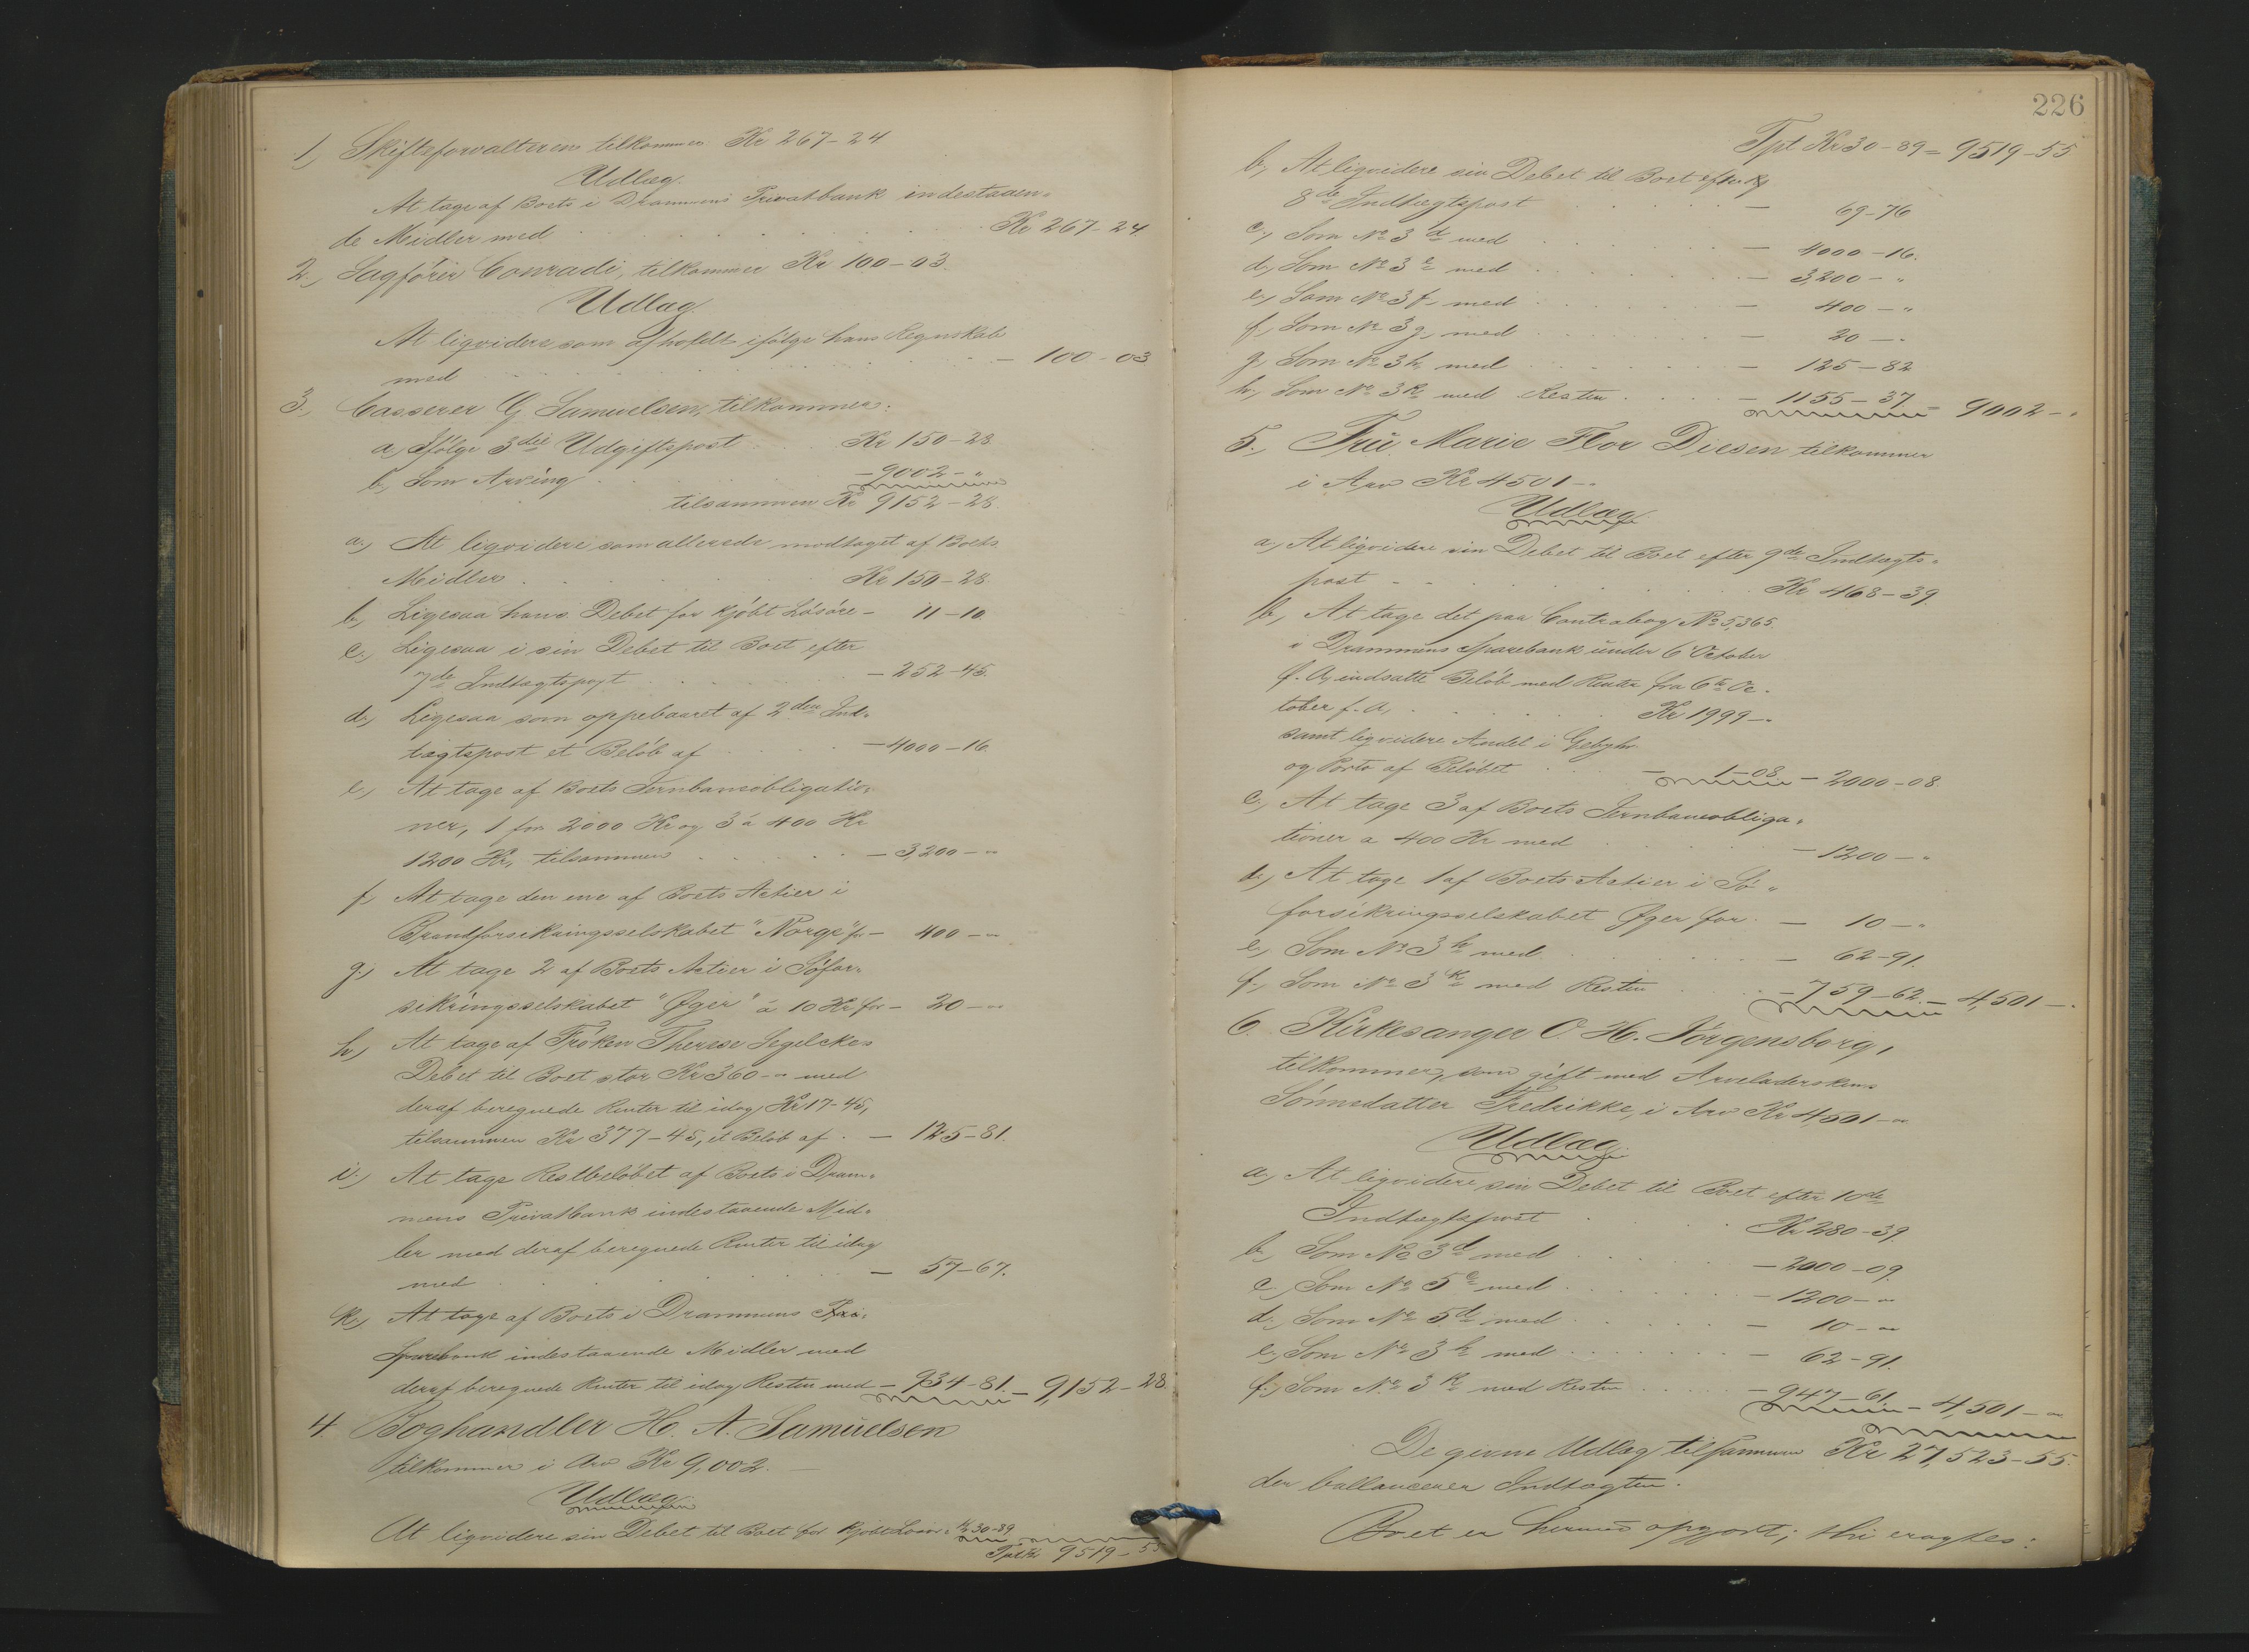 1, Skifteforvalteren tilkommer Kr 267-24
Udlæg.
At tage af Boets i Drammens Privatbank indestaaen-
de Midler med . . . . Kr 267-24.
2, Sagfører Conradi, tilkommer Kr 100-03.
Udlæg.
At liqvidere som afholdt ifølge hans Regnskab
med . . . . - 100-03
3, Casserer G. Samuelsen, tilkommer:
a, Ifølge 3die Udgiftspost . . Kr 150-28
b, Som Arving . . . . - 9002-"
tilsammen Kr 9152-28.
a., At liqvidere som allerede modtaget af Boets
Midler . . . . Kr 150-28.
b, Ligesaa hans Debet for kjøbt Løsøre - 11-10.
c., Ligesaa i sin Debet til Boet efter
7de Indtægtspost . . . . - 252-45.
d., Ligesaa som oppebaaret af 2den Ind-
tægtspost et Beløb af . . . - 4000-16.
e, At tage af Boets Jernbaneobligatio-
ner, 1 for 2000 Kr og 3 á 400 Kr
1200 Kr, tilsammen . . . . - 3,200-"
f, At tage den ene af Boets Actier i
Brandforsikringsselskabet "Norge" for - 400-"
g., At tage 2 af Boets Actier i Søfor-
sikringsselskabet "Øger" á 10 Kr for - 20-"
h, At tage af Frøken Therese Segelckes
Debet til Boet stor Kr 360-" med
deraf beregnede Renter til idag Kr 17-45,
tilsammen Kr 377-45, et Beløb af . - 125-81.
i., At tage Restbeløbet af Boets i Dram-
mens Privatbank indestaaende Mid-
ler med deraf beregnede Renter til idag
med . . . . - 57-67.
k., At tage af Boets i Drammens
Sparebank indestaaende Midler med
deraf beregnede Renter til idag Resten med - 934-81. - 9,152-28
4. Boghandler H. A. Samuelsen
tilkommer i Arv Kr 9,002.-
Udlæg.
At liqvidere sin Debet til Boet for kjøbt Løsøre Kr 30-89
Tpt. Kr 9519-55
226
Tpt Kr 30-89 = 9519-55
b, At liqvidere sin Debet til Boet efter
8de Indtægtspost . . . . - 69-76
c, Som No 3 d med . . . . - 4000-16.
d, Som No 3 e med . . . . - 3,200-"
e, Som No 3 f, med . . . . - 400-"
f, Som No 3 g, med . . . . - 20-.
g, Som No 3 h, med . . . . - 125-82
h, Som No 3 k med Resten . . . . - 1155-37 = 9002-"
5., Fru Marie Flor Diesen tilkommer
i Arv Kr 4501-.
Udlæg
a, At liqvidere sin Debet til Boet efter 9de Indtægts-
post . . . . Kr 468-39.
b, At tage det paa Contrabog No 5,365.
i Drammens Sparebank under 6 October
f. A, indsatte Beløb med Renter fra 6te Oc-
tober f. A, . . . . Kr 1999-.
samt liqvidere Andel i Gebyhr
og Porto af Beløbet . . - 1-08 - 2000-08.
c., At tage 3 af Boets Jernbaneobliga-
tioner a 400 Kr med . . . . - 1200-"
d, At tage 1 af Boets Actier i Sø-
forsikringsselskabet Øger for . - 10-"
e, Som No 3 h med . . . . - 62-91.
f, Som No 3 k med Resten . . - 759-62. - 4,501-.
6. Kirkesanger O. H. Jørgensborg,
tilkommer, som gift med Arveladerskens
Sønnedatter Fredrikke, i Arv Kr 4,501-"
Udlæg.
a, At liqvidere sin Debet til Boet efter 10de
Indtægtspost . . . Kr 280-39
b, Som No 3 d med . . . . - 2000-09.
c, Som No 5 c med . . . . - 1200-"
d., Som No 5 d med . . . . - 10-"
e, Som No 3 h med . . . . - 62-91.
f., Som No 3 k med Resten . . . - 947-61. - 4,501-"
De givne Udlæg tilsammen Kr 27,523-55.
der ballancerer Indtægten.
Boet er hermed opgjort; thi eragtes: